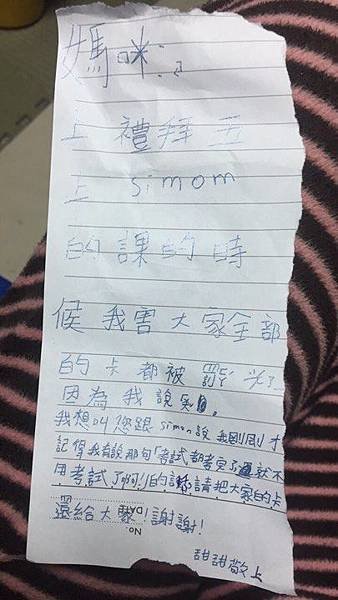 媽咪:
上禮拜五
上 simom
的課的時
候我害大家全部
的卡都被罰光了
因為我說
我想叫您跟simon說我剛剛才
記得我有說那句「考試都考完了就不
用考試了啊!」的 請把大家的卡
還給大家!謝謝!
DATE
No.
甜甜敬上